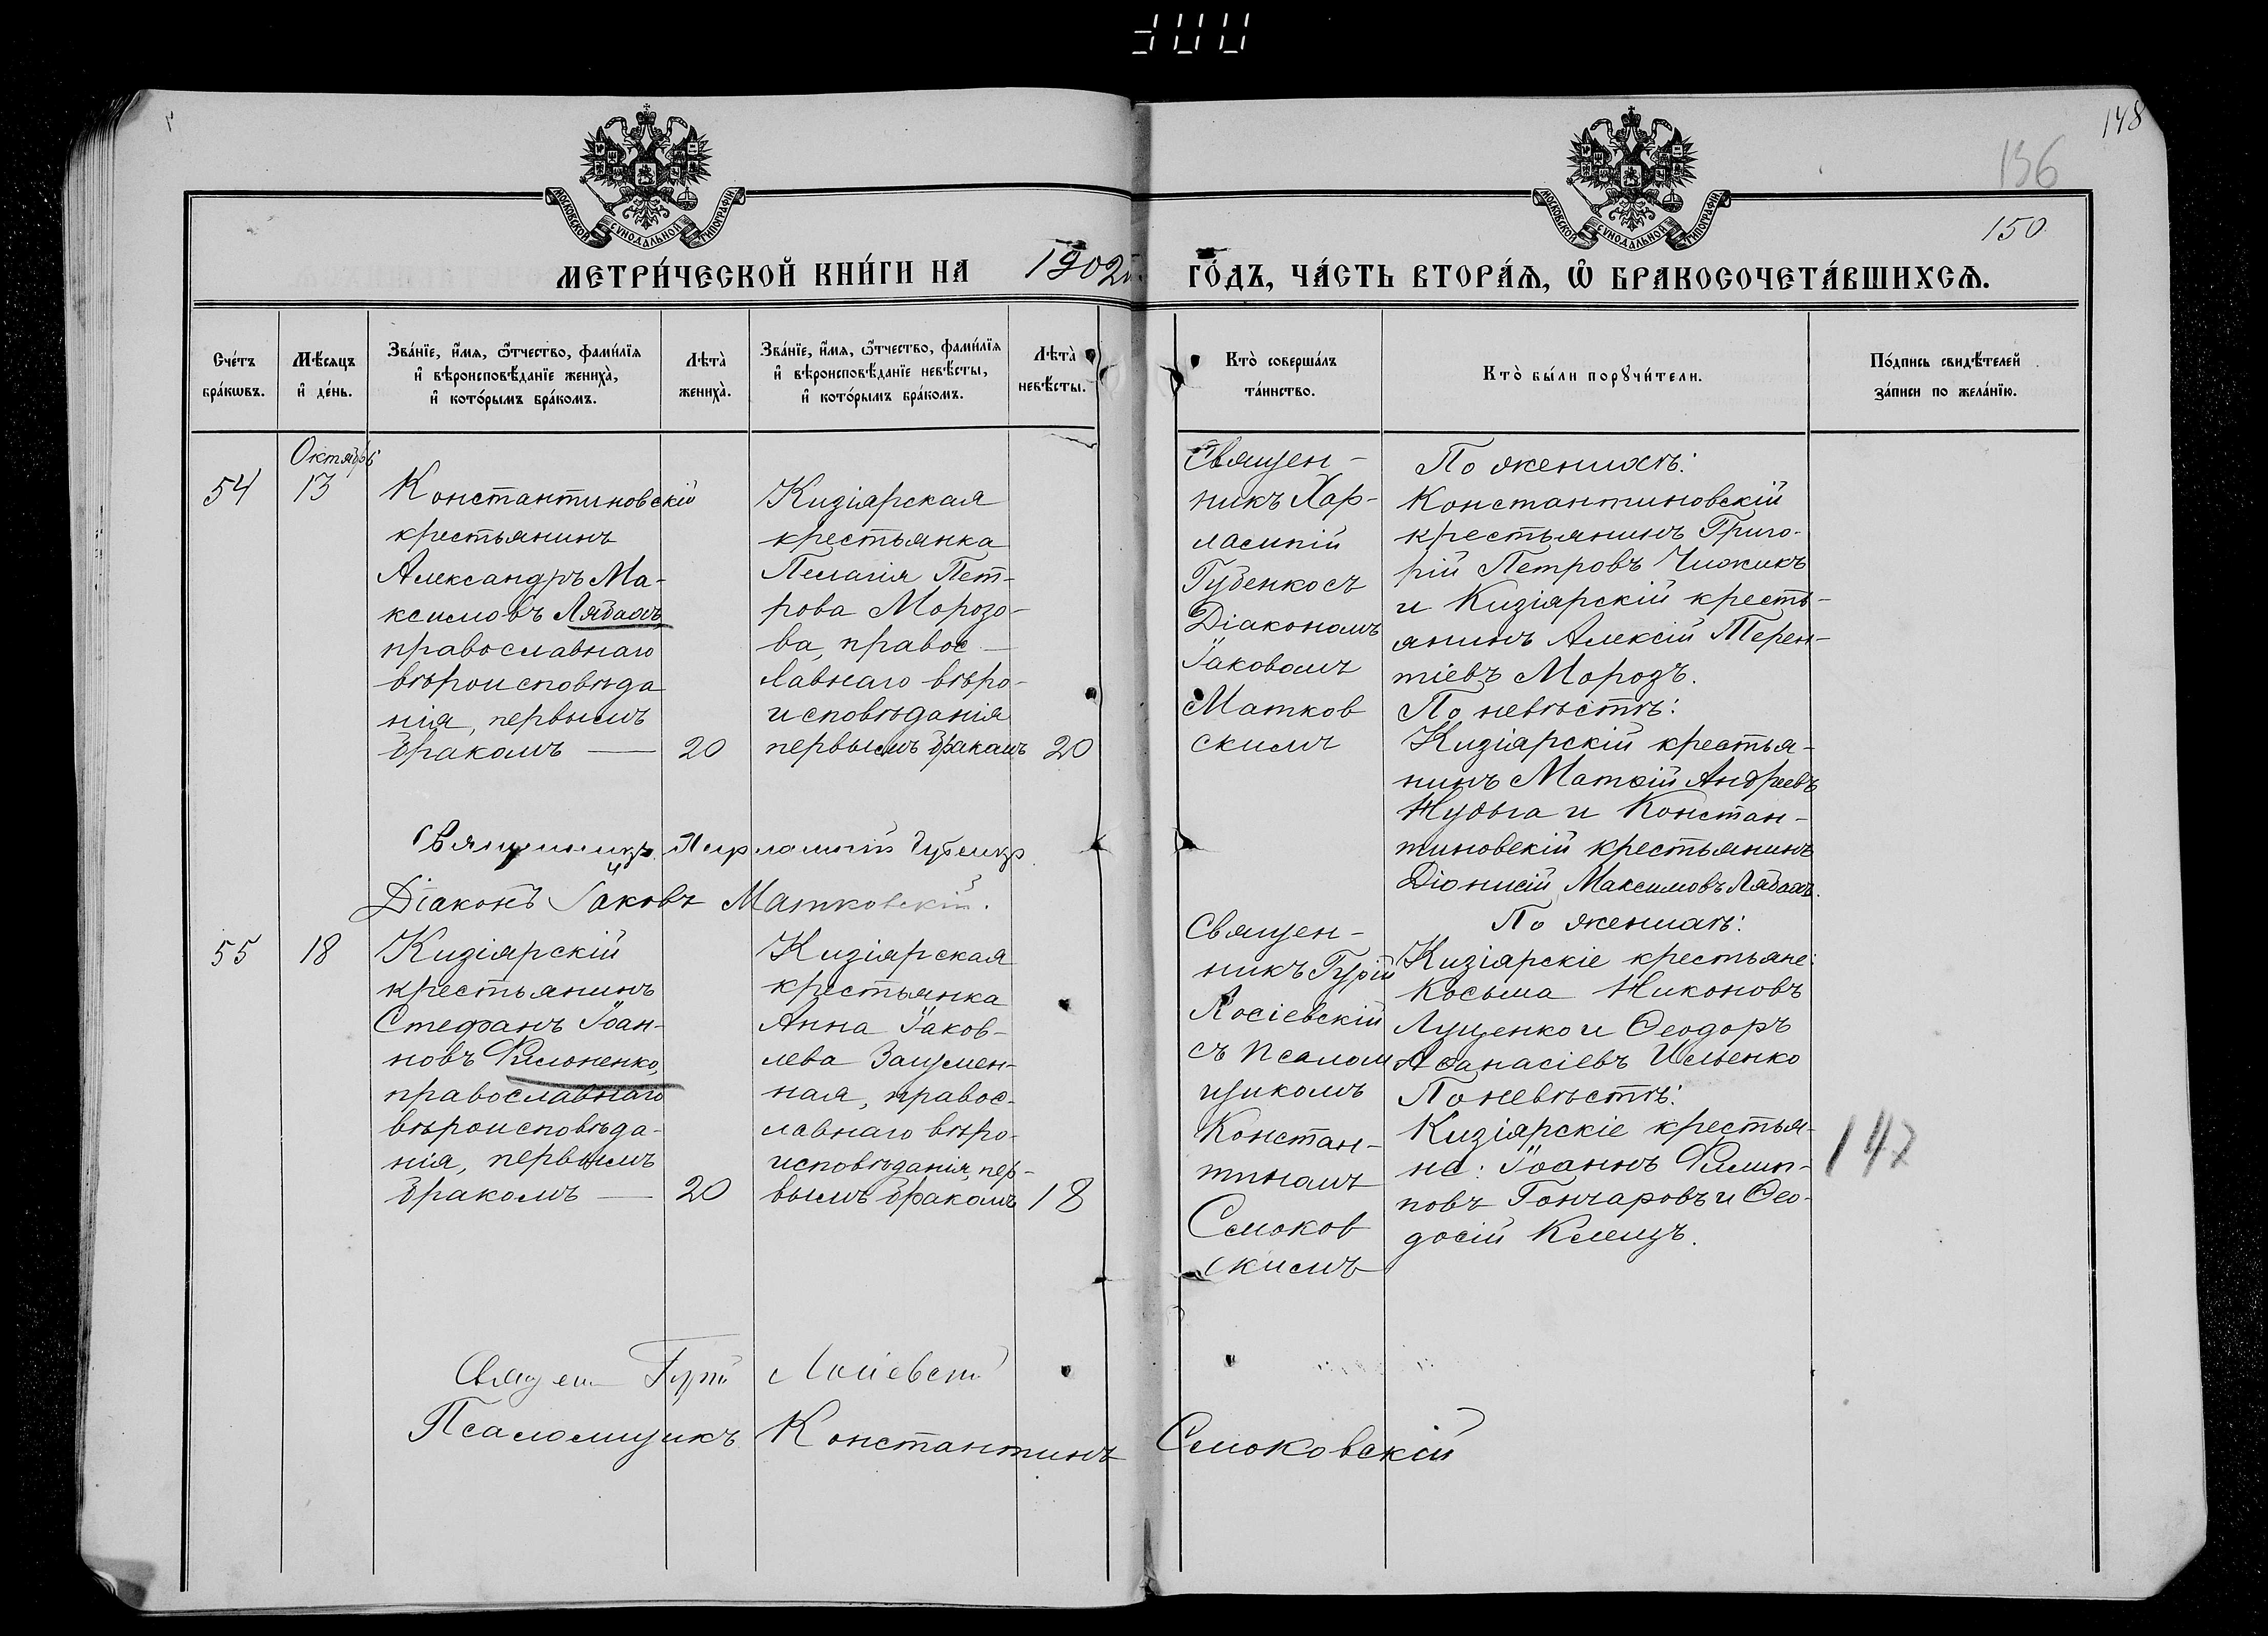 148
136
150
МОСКОВСКОЙ СѴНОДАЛЬНОЙ ТИПОГРАФІИ
МОСКОВСКОЙ СѴНОДАЛЬНОЙ ТИПОГРАФІИ
МЕТРИ́ЧЕСКОЙ КНИ́ГИ НА 1902
ГО́ДЪ, ЧА́СТЬ ВТОРА́Ѧ, Ѽ БРАКОСОЧЕТА́ВШИХСѦ.
Сче́тъ бра́кѡвъ.
Мѣ́сяцъ и҆ де́нь.
Зва́нїе, и҆́мя, ѻ҆́тчество, фами́лїя и҆ вѣроисповѣ́данїе жениха̀, и҆ кото́рымъ бра́комъ.
Лѣта̀ жениха̀.
Зва́нїе, и҆́мя, ѻ҆́тчество, фами́лїя и҆ вѣроисповѣ́данїе невѣ́сты, и҆ кото́рымъ бра́комъ.
Лѣта̀ невѣ́сты.
Кто̀ соверша́лъ та́инство.
Кто̀ бы́ли порꙋчи́тели.
По́дпись свидѣ́телей за́писи по жела́нїю.
54
Октябрь
13
Константиновскій
крестьянинъ
Александръ Ма-
ксимовъ Лябахъ,
православнаго
вѣроисповѣда
нія, первымъ
бракомъ —
20
Кизіярская
крестьянка
Пелагія Пет-
рова Морозо-
ва, правос-
лавнаго вѣро-
исповѣданія
первымъ бракомъ
20
Священ-
никъ Хар-
лампій
Губенко съ
Діакономъ
Іаковомъ
Матков
скимъ
По женихѣ:
Константиновскій
крестьянинъ Григо-
рій Петровъ Чижикъ
и Кизіярскій кресть-
янинъ Алексій Терен-
тіевъ Морозъ.
По невѣстѣ:
Кизіярскій крестья-
нинъ Матѳій Андреевъ
Нудьга и Констан-
тиновскій крестьянинъ
Діонисій Максимовъ Лябахъ.
Священникъ Харлампій Губенко
Діаконъ Іаковъ Матковскій.
55
18
Кизіярскій
крестьянинъ
Стефанъ Іоан-
новъ Филоненко,
православнаго
вѣроисповѣда-
нія, первымъ
бракомъ —
20
Кизіярская
крестьянка
Анна Іаков-
лева Заушмен-
ная, правос-
лавнаго вѣро-
исповѣданія, пер-
вымъ бракомъ
18
Священ-
никъ Гурій
Лосіевскій
съ псалом
щикомъ
Констан-
тиномъ
Смоков
скимъ
По женихѣ:
Кизіярскіе крестьяне:
Косьма Никоновъ
Лущенко и Ѳеодоръ
Аѳанасіевъ Ильенко
По невѣстѣ:
Кизіярскіе крестья-
не: Іоаннъ Филип-
повъ Гончаровъ и Ѳео-
досій Клецъ.
147
Священ Гурій Лосіевскій
Псаломщикъ Константинъ Смоковскій